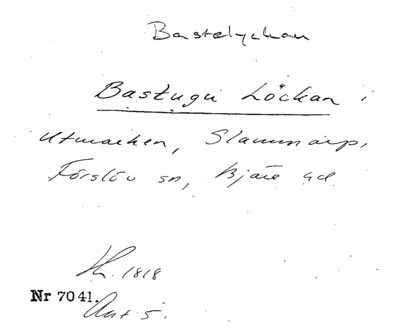 Bastelyckan
Bastugu Löckan i
utmarken, Slammarp,
Förslöv sn, Bjäre hd
H. 1818
Nr 7041.
Ant 5.